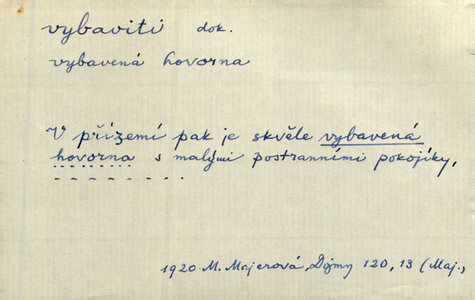 vybaviti dok.
vybavená hovorna
V přízemí pak je skvěle vybavená
hovorna s malými postranními pokojíky,
1920 M. Majerová, Dojmy 120, 13 (Maj.,